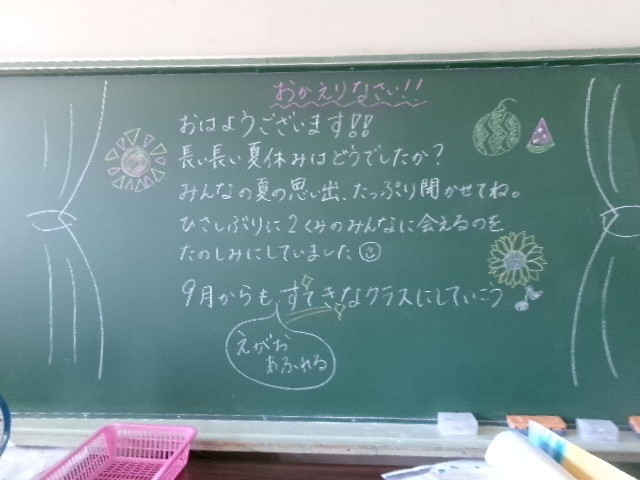 おかえりなさい!!
おはようございます!!
長い長い夏休みはどうでしたか?
みんなの夏の思い出、たっぷり聞かせてね。
ひさしぶりに2くみのみんなに会えるのを
たのしみにしていました
9月からも、すてきなクラスにしていこう
えがお
あふれる